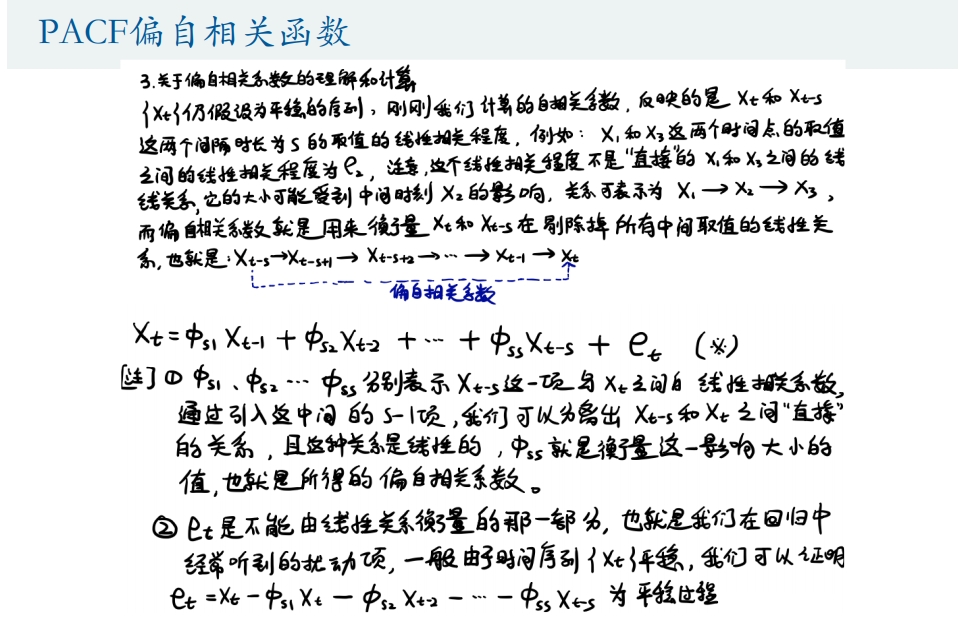 PACF偏自相关函数
3.关于偏自相关系数的理解和计算
{Xt}仍假设为平稳的序列，刚刚我们计算的自相关系数，反映的是 Xt 和 Xt-s
这两个间隔时长为 s 的取值的线性相关程度，例如：X₁和X₃这两个时间点的取值
之间的线性相关程度为ρ₂，注意，这个线性相关程度不是“直接”的 X₁和X₃之间的线
线关系，它的大小可能受到中间时刻 X₂的影响，关系可表示为 X₁→X₂→X₃，
而偏自相关系数就是用来衡量 Xt 和 Xt-s 在剔除掉所有中间取值的线性关
系，也就是：Xt-s→Xt-s+1→ Xt-s+2→…→Xt-1→Xt
偏自相关系数
Xt=ϕs1 Xt-1 + ϕs2 Xt-2 + … + ϕss Xt-s + et (※)
[注]① ϕs1、ϕs2 … ϕss 分别表示 Xt-s这一项与 Xt之间的线性相关系数，
通过引入这中间的 s-1项，我们可以分离出 Xt-s 和 Xt 之间“直接”
的关系，且这种关系是线性的，ϕss 就是衡量这一影响大小的
值，也就是所得的偏自相关系数。
② et是不能由线性关系衡量的那一部分，也就是我们在回归中
经常听到的扰动项，一般由于时间序列{Xt}平稳，我们可以证明
et =Xt - ϕs1 Xt - ϕs2 Xt-2 - … - ϕss Xt-s 为平稳过程